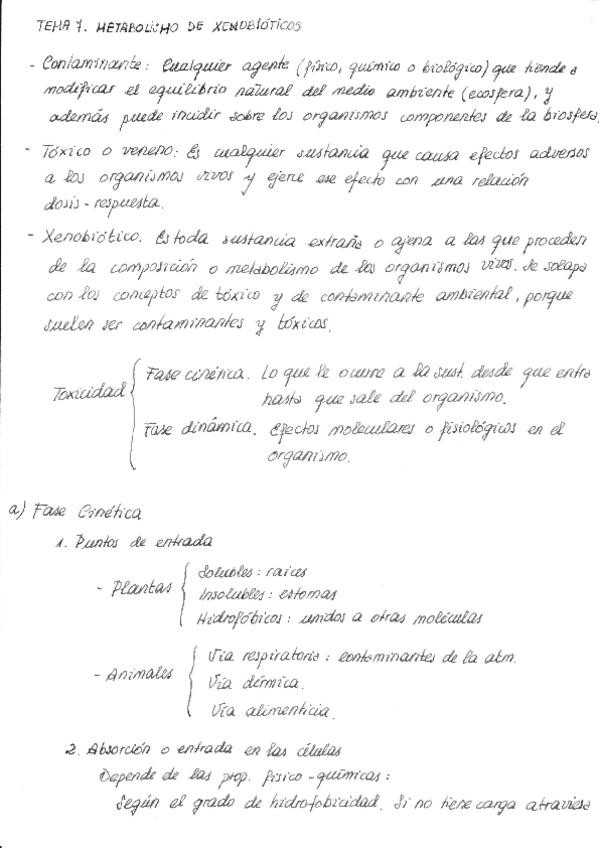 TEMA 7. METABOLISMO DE XENOBIÓTICOS
- Contaminante: Cualquier agente (físico, químico o biológico) que tiende a
modificar el equilibrio natural del medio ambiente (ecosfera), y
además puede incidir sobre los organismos componentes de la biosfera.
- Tóxico o veneno: Es cualquier sustancia que causa efectos adversos
a los organismos vivos y ejerce ese efecto con una relación
dosis-respuesta.
- Xenobiótico. Es toda sustancia extraña o ajena a las que proceden
de la composición o metabolismo de los organismos vivos. Se solapa
con los conceptos de tóxico y de contaminante ambiental, porque
suelen ser contaminantes y tóxicos.
Toxicidad
Fase cinética. Lo que le ocurre a la sust. desde que entra
hasta que sale del organismo.
Fase dinámica. Efectos moleculares o fisiológicos en el
organismo.
a) Fase Cinética
1. Puntos de entrada
- Plantas
Solubles: raíces
Insolubles: estomas
Hidrofóbicos: unidos a otras moléculas
- Animales
Vía respiratoria: contaminantes de la atm.
Vía dérmica.
Vía alimenticia.
2. Absorción o entrada en las células
Depende de las prop. físico-químicas:
Según el grado de hidrofobicidad. Si no tiene carga atraviesa